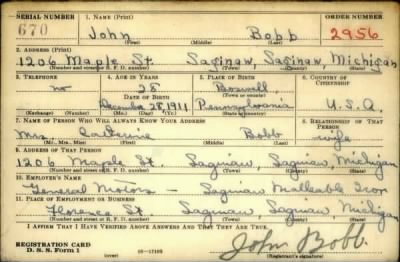 SERIAL NUMBER 1. NAME (Print) ORDER NUMBER
670 John Bobb 2956
(First) (Middle) (Last)
2. ADDRESS (Print)
1206 Maple St. Saginaw, Saginaw, Michigan
(Number and street or R. F. D. number) (Town) (County) (State)
3. TELEPHONE 4. AGE IN YEARS 5. PLACE OF BIRTH 6. COUNTRY OF CITIZENSHIP
no 28 Boswell
DATE OF BIRTH
December 28, 1911 Pennsylvania U.S.A.
(Exchange) (Number) (Mo.) (Day) (Yr.) (State or country)
7. NAME OF PERSON WHO WILL ALWAYS KNOW YOUR ADDRESS 8. RELATIONSHIP OF THAT PERSON
Mrs. Catherine Bobb wife
(Mr., Mrs., Miss) (First) (Middle) (Last)
9. ADDRESS OF THAT PERSON
1206 Maple St Saginaw, Saginaw, Michigan
(Number and street or R. F. D. number) (Town) (County) (State)
10. EMPLOYER'S NAME
General Motors — Saginaw Malleable Iron
11. PLACE OF EMPLOYMENT OR BUSINESS
Florence St Saginaw, Saginaw, Michigan
(Number and street or R. F. D. number) (Town) (County) (State)
I AFFIRM THAT I HAVE VERIFIED ABOVE ANSWERS AND THAT THEY ARE TRUE.
REGISTRATION CARD
D. S. S. Form 1
(over) John Bobb